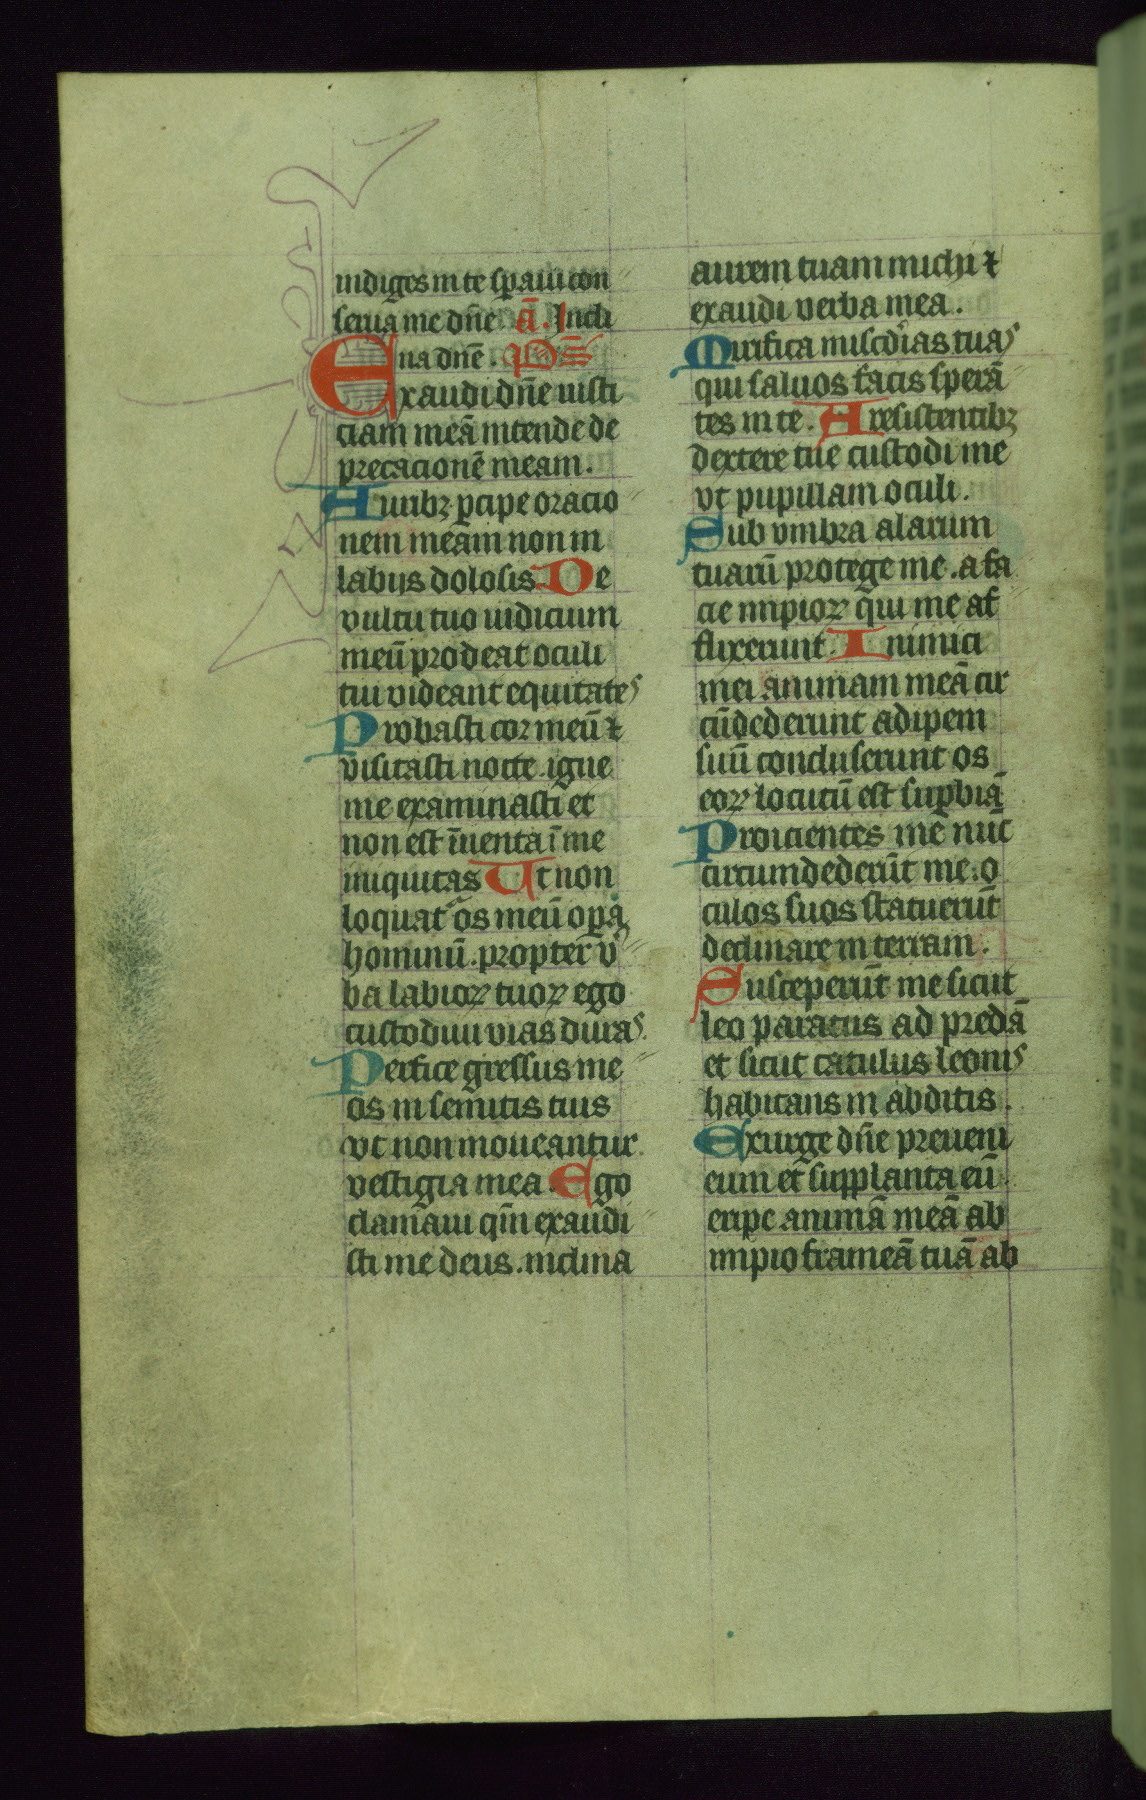 indiges in te speraui con
serua me dn̄e. A̅. Incli
na dn̄e. Ps
Exaudi dn̄e iusti
ciam meā intende de
precacionē meam.
Auribꝫ ꝑcipe oracio
nem meam non in
labijs dolosis De
vultu tuo iudicium
meū prodeat oculi
tui videant equitates
Probasti cor meū ⁊
visitasti nocte. igne
me examinasti et
non est īuenta ī me
iniquitas Ut non
loquat᷑ os meū oꝑa
hominū. propter v̾
ba labioꝝ tuoꝝ ego
custodiui vias duras
Perfice gressus me
os in semitis tuis
vt non moueantur
vestigia mea. Ego
clamaui qm̄ exaudi
sti me deus. inclina
aurem tuam michi ⁊
exaudi verba mea.
Mirifica misc̄dias tuas
qui saluos facis sperā
tes in te. A resistentibꝫ
dextere tue custodi me
vt pupillam oculi.
Sub vmbra alarum
tuarū protege me. a fa
cie impioꝝ qui me af
flixerunt. Inimici
mei animam meā cir
cūdederunt adipem
suū concluserunt os
eoꝝ locutū est suꝑbiā
Proicientes me nūc
circumdederūt me. o
culos suos statuerūt
declinare in terram.
Susceperūt me sicut
leo paratus ad predā
et sicut catulus leonis
habitans in abditis.
Exurge dn̄e preueni
eum et supplanta eū.
eripe animā meā ab
impio frameā tuā ab